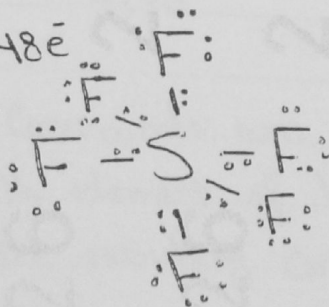 48ē
F
F
F – S – F
F
F